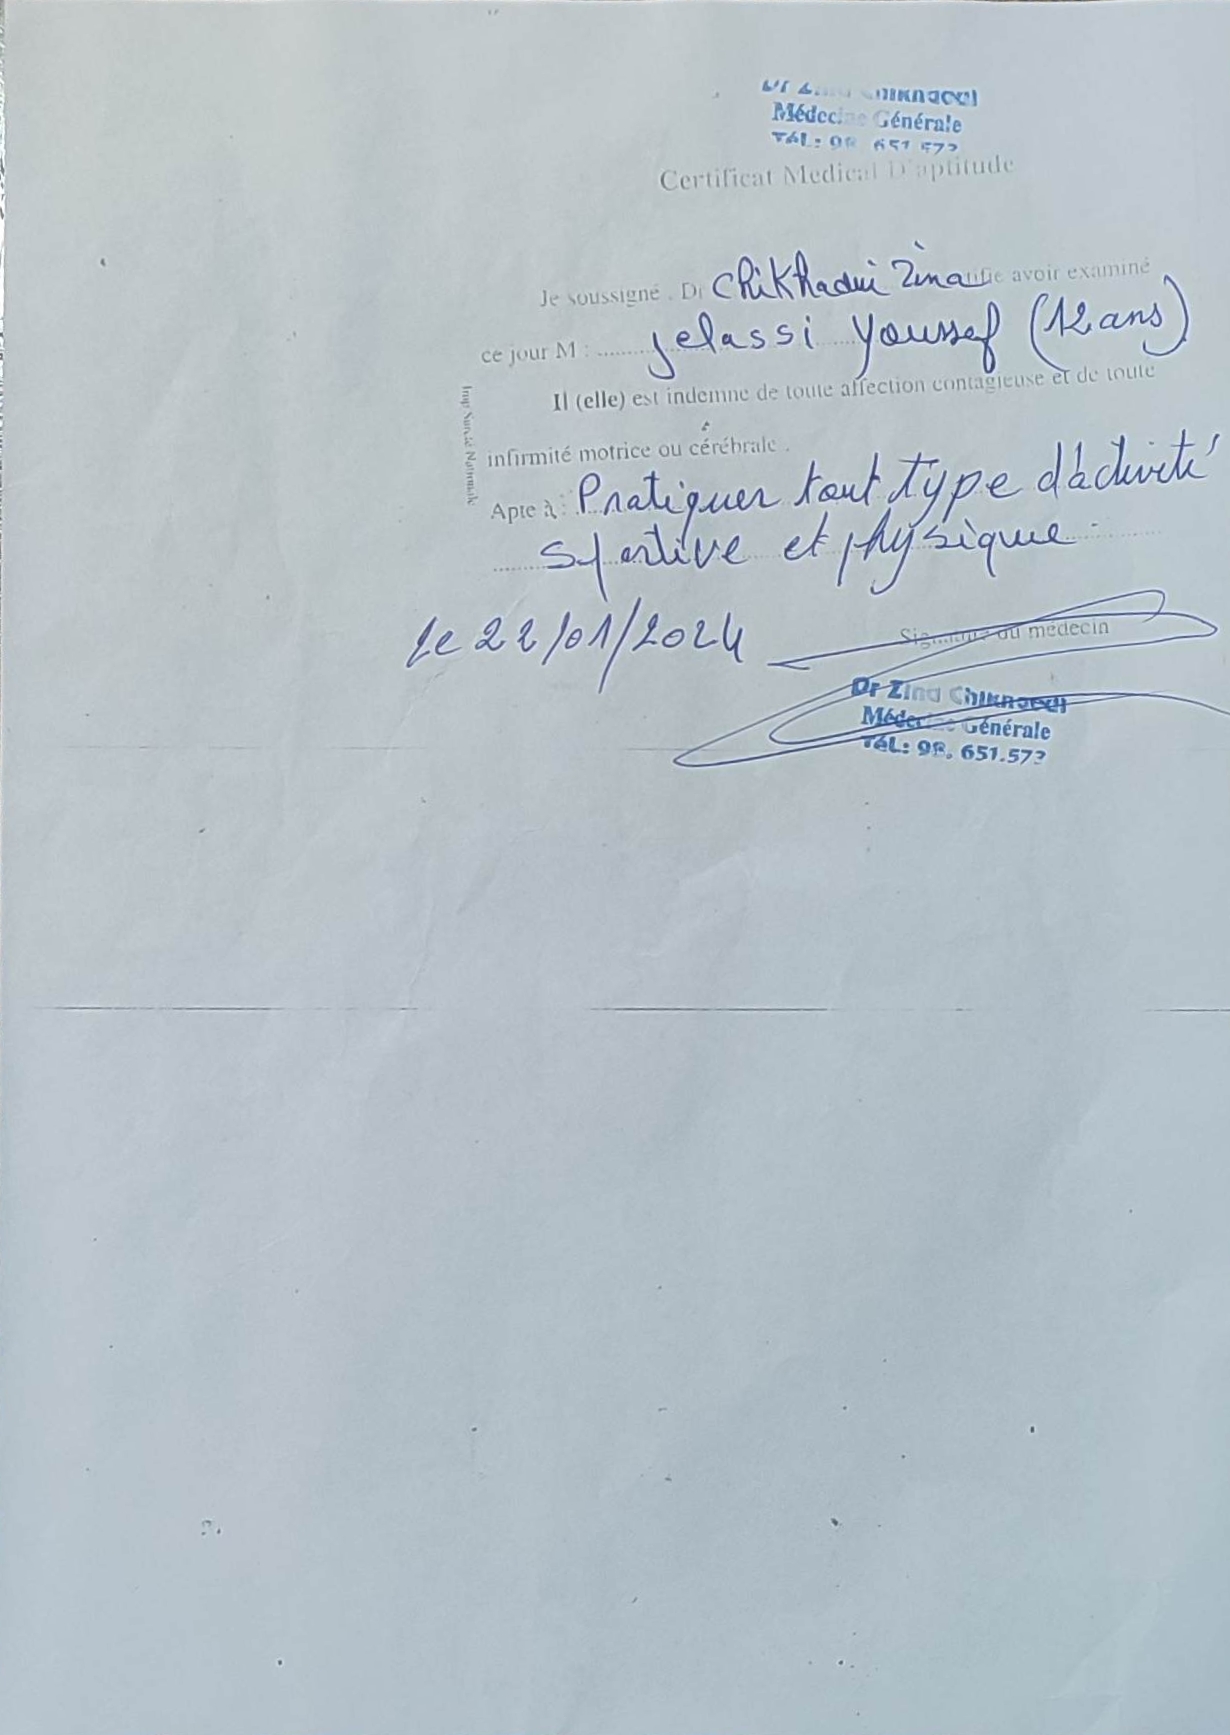 Dr Chikhaoui
Médecine Générale
Tél: 98 651 573
Certificat Medical D'aptitude
Je soussigné . Dr Chikhaoui Zina certifie avoir examiné
ce jour M : ......... Jelassi Youssef (12 ans)
Il (elle) est indemne de toute affection contagieuse et de toute
infirmité motrice ou cérébrale .
Apte à : Pratiquer tout type d'activité
sportive et physique.
le 22/01/2024
Signature du médecin
Dr Zina Chikhaoui
Médecine Générale
Tél: 98. 651.573